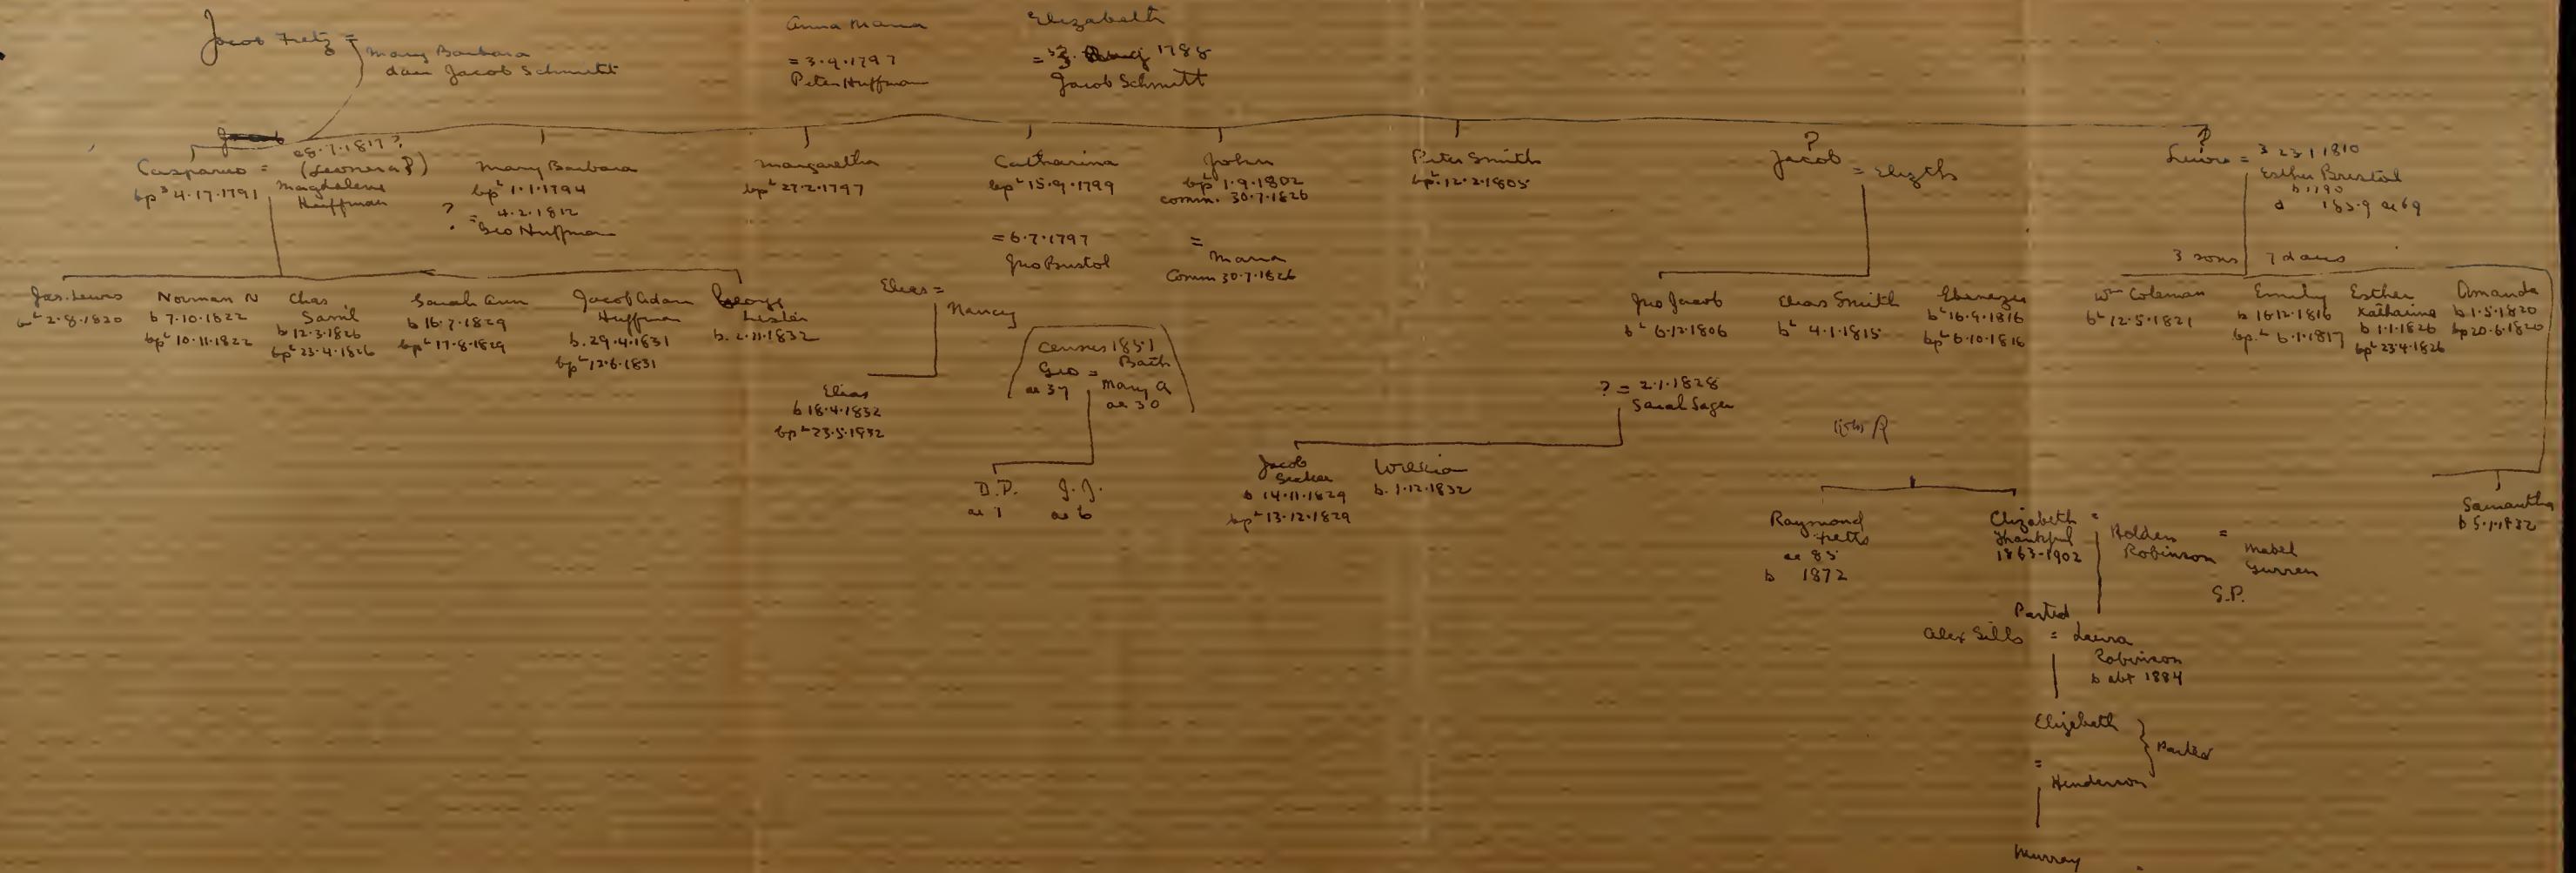 Jacob Fretz =
Mary Barbara
dau Jacob Schmitt
Anna Maria
= 3.9.1797
Peter Huffman
Elizabeth
1788
Jacob Schmitt
Casparus =
bp³ 4.17.1791
28.7.1817?
(Leonera?)
Magdalena
Huffman
Mary Barbara
bpᴸ 1.1.1794
? = 4.2.1812
Geo Huffman
Margaretha
bpᴸ 27.2.1797
Catharina
bpᴸ 15.9.1799
= 6.7.1797
Jno Bristol
John
bpᴸ 1.9.1802
comm. 30.7.1826
=
Maria
Comm 30.7.1826
Peter Smith
bpᴸ 12.2.1805
?
Jacob
= Elizth
?
Lewis =
3 23.1.1810
Esther Bristol
b 1790
ae 69
3 sons 7 daus
Jas. Lewis
bᴸ 2.8.1820
Norman N
b 7.10.1822
bpᴸ 10.11.1822
Chas
Saml
b 12.3.1826
bpᴸ 23.4.1826
Sarah Ann
b 16.7.1829
bpᴸ 17.8.1829
Jacob Adam
Huffman
b. 29.4.1831
bpᴸ 12.6.1831
George
Lester
b. 2.11.1832
Elias =
Nancy
Elias
b 18.4.1832
bpᴸ 23.5.1832
Census 1851
Bath
Geo =
ae 37
Mary A
ae 30
D.P.
ae 7
J.J.
ae 6
Jno Jacob
bᴸ 6.12.1806
Elias Smith
bᴸ 4.1.1815
Ebenezer
bᴸ 16.9.1816
bpᴸ 6.10.1816
Wᵐ Coleman
bᴸ 12.5.1821
Emily
b 16.12.1816
bp.ᴸ 6.1.1817
Esther
Katharine
b 1.1.1826
bpᴸ 23.4.1826
Amanda
b 1.5.1820
bp 20.6.1820
? = 2.1.1828
Sarah Sager
Jacob
b 14.11.1829
bpᴸ 13.12.1829
b. 1.12.1832
Samantha
b 5.1.1832
Raymond
Fretts
ae 85
b 1872
Elizabeth =
Thankful
1863-1902
Holden =
Robinson
Mabel
Gurren
S.P.
Parted
Alex Sills = Laura
Robinson
b abt 1884
Elizabeth
Parted
=
Henderson
Murray